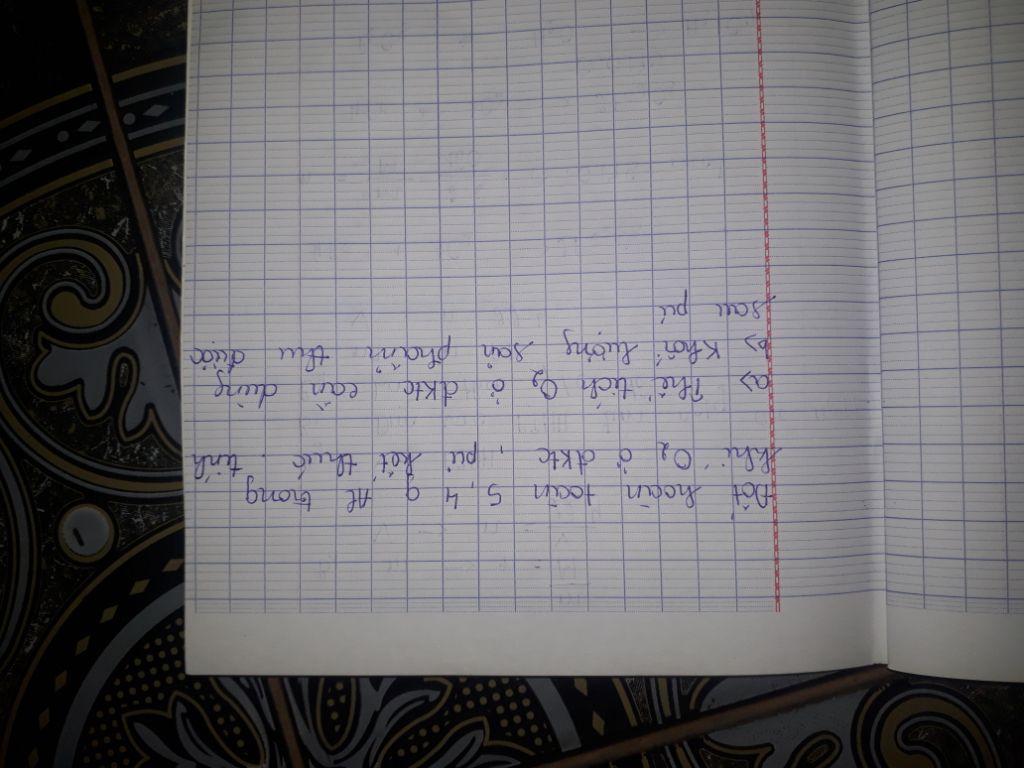 Đốt hoàn toàn 5,4 g Al trong
khí O2 ở đktc, pứ kết thúc. tính
a> Thể tích O2 ở đktc cần dùng
b> Khối lượng sản phẩm thu được
sau pứ